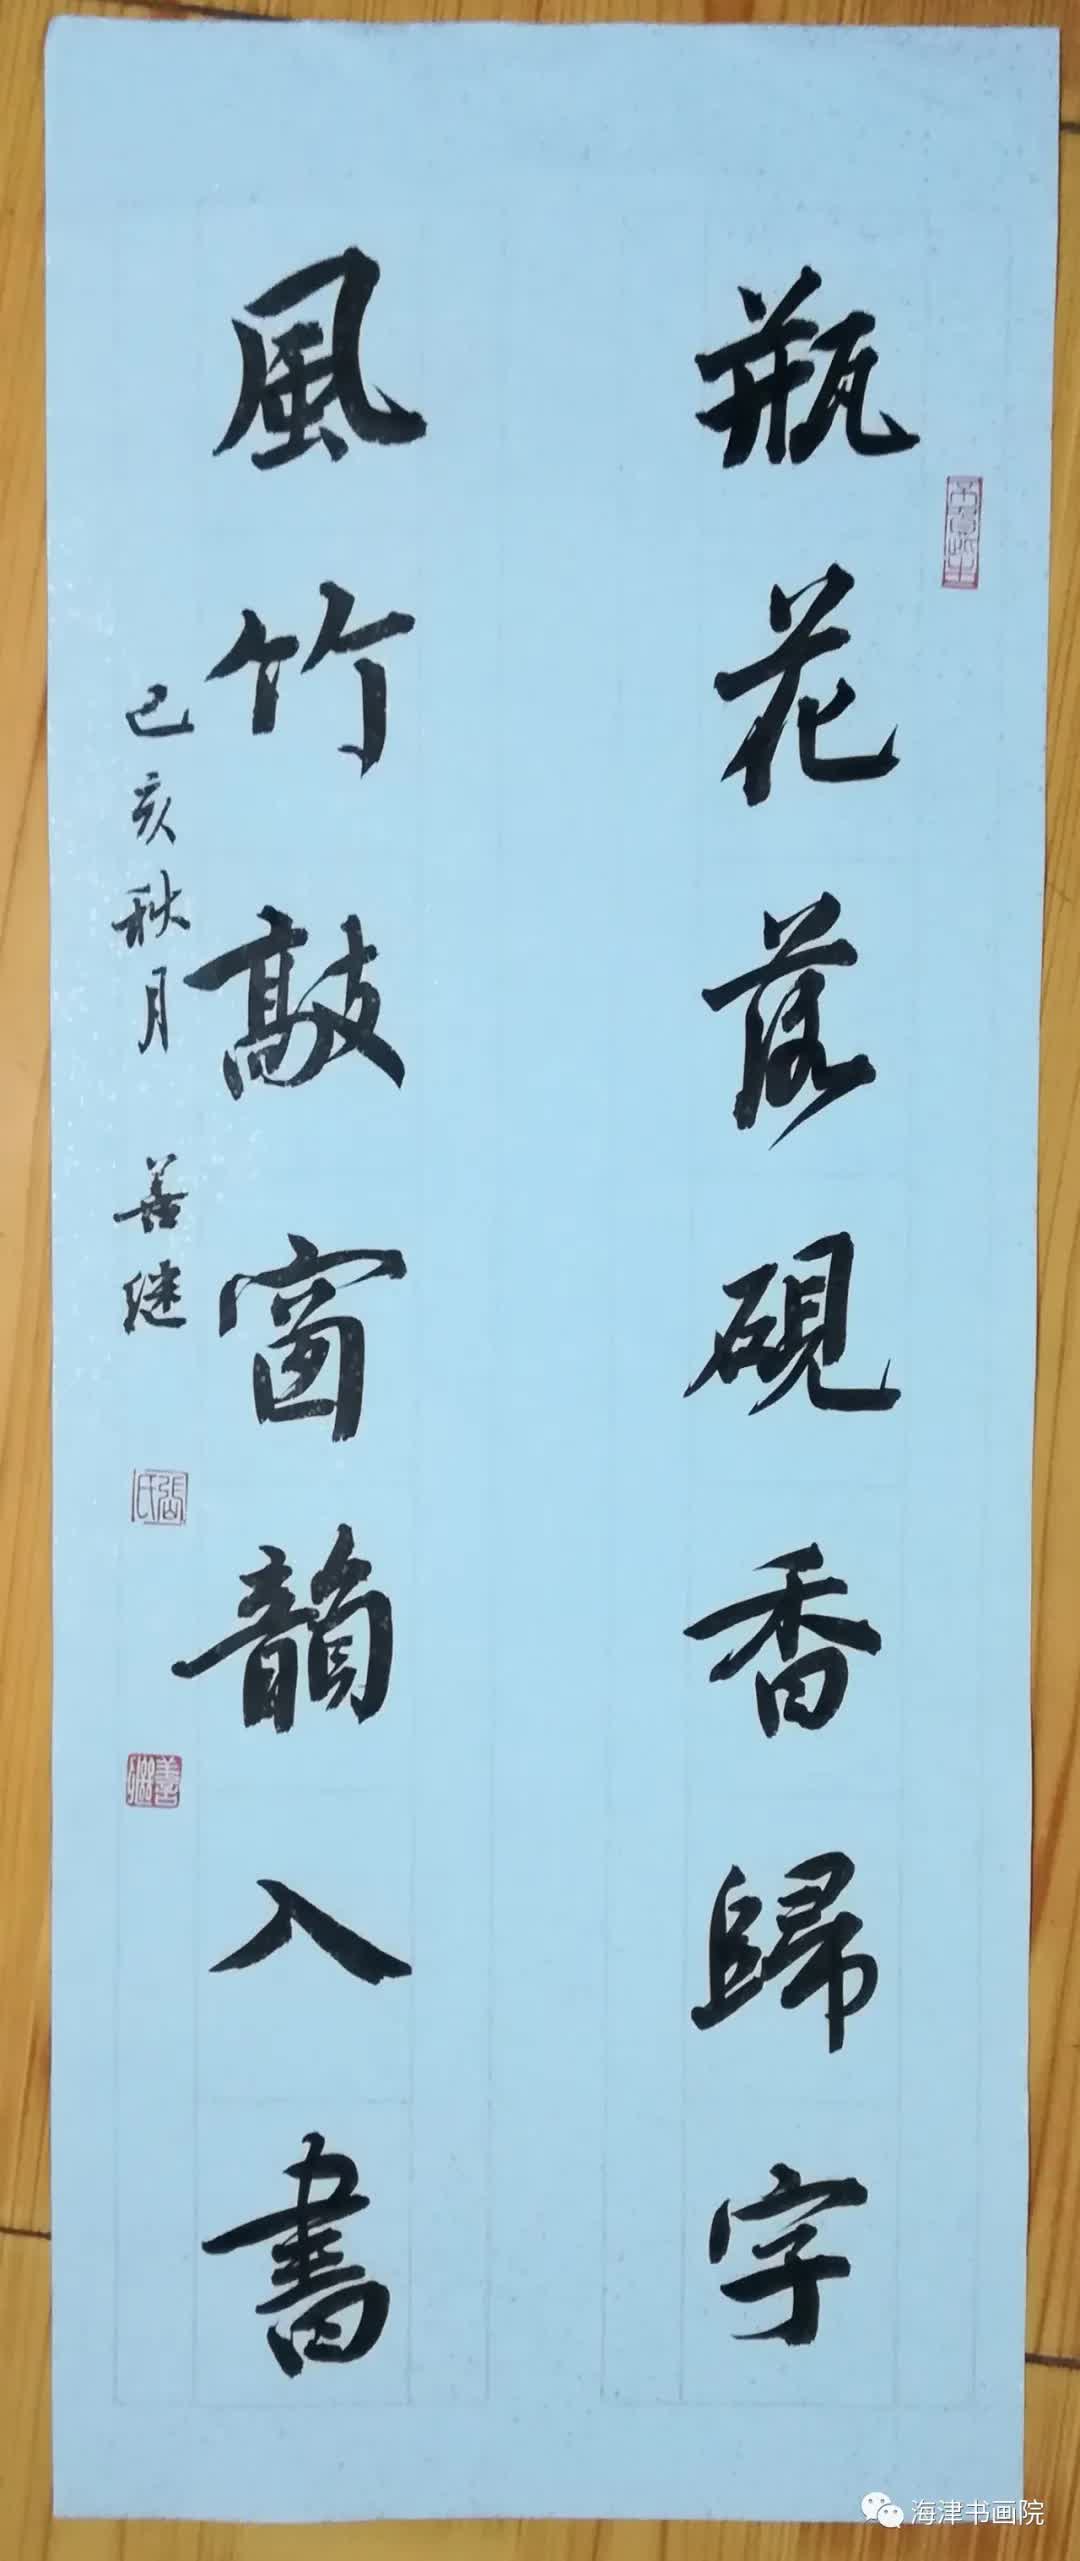 瓶花落硯香歸字
風竹敲窗韻入書
己亥秋月 善继
張氏
善繼
海津书画院